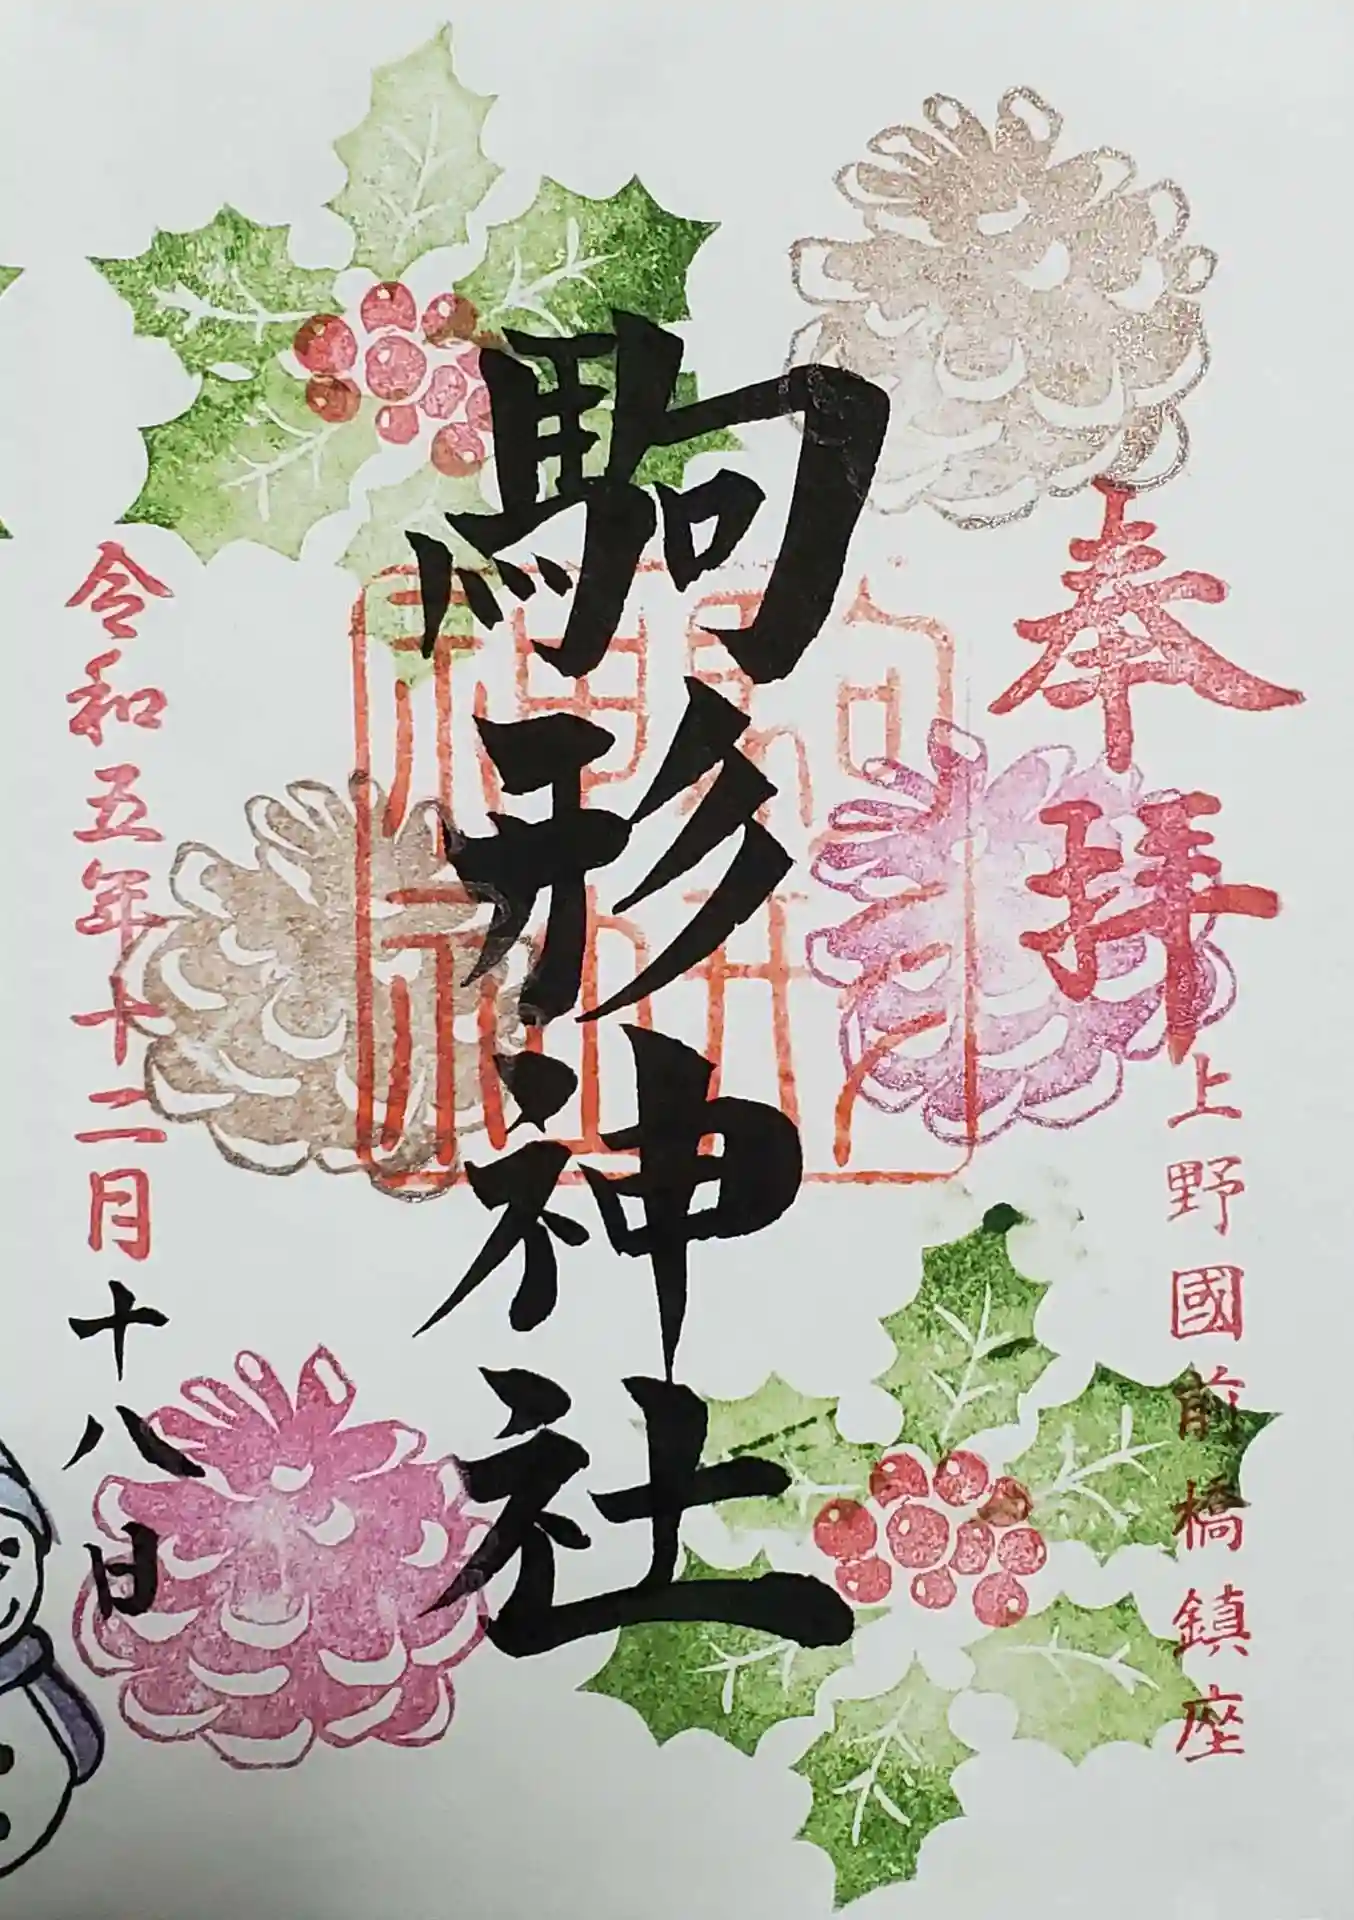 奉拝
上野國前橋鎮座
駒形神社
令和五年十二月十八日